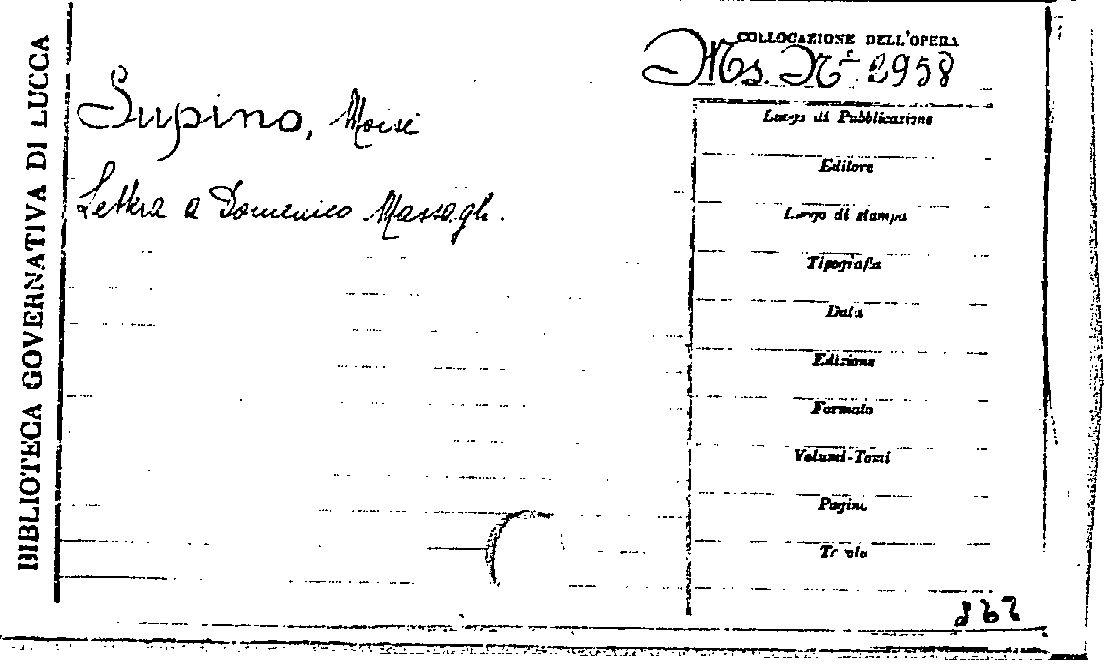 BIBLIOTECA GOVERNATIVA DI LUCCA
COLLOCAZIONE DELL'OPERA
Ms. N° 2958
Supino, Moisè
Lettera a Domenico Massagli.
Luogo di Pubblicazione
Editore
Luogo di stampa
Tipografia
Data
Edizione
Formato
Volumi-Tomi
Pagine